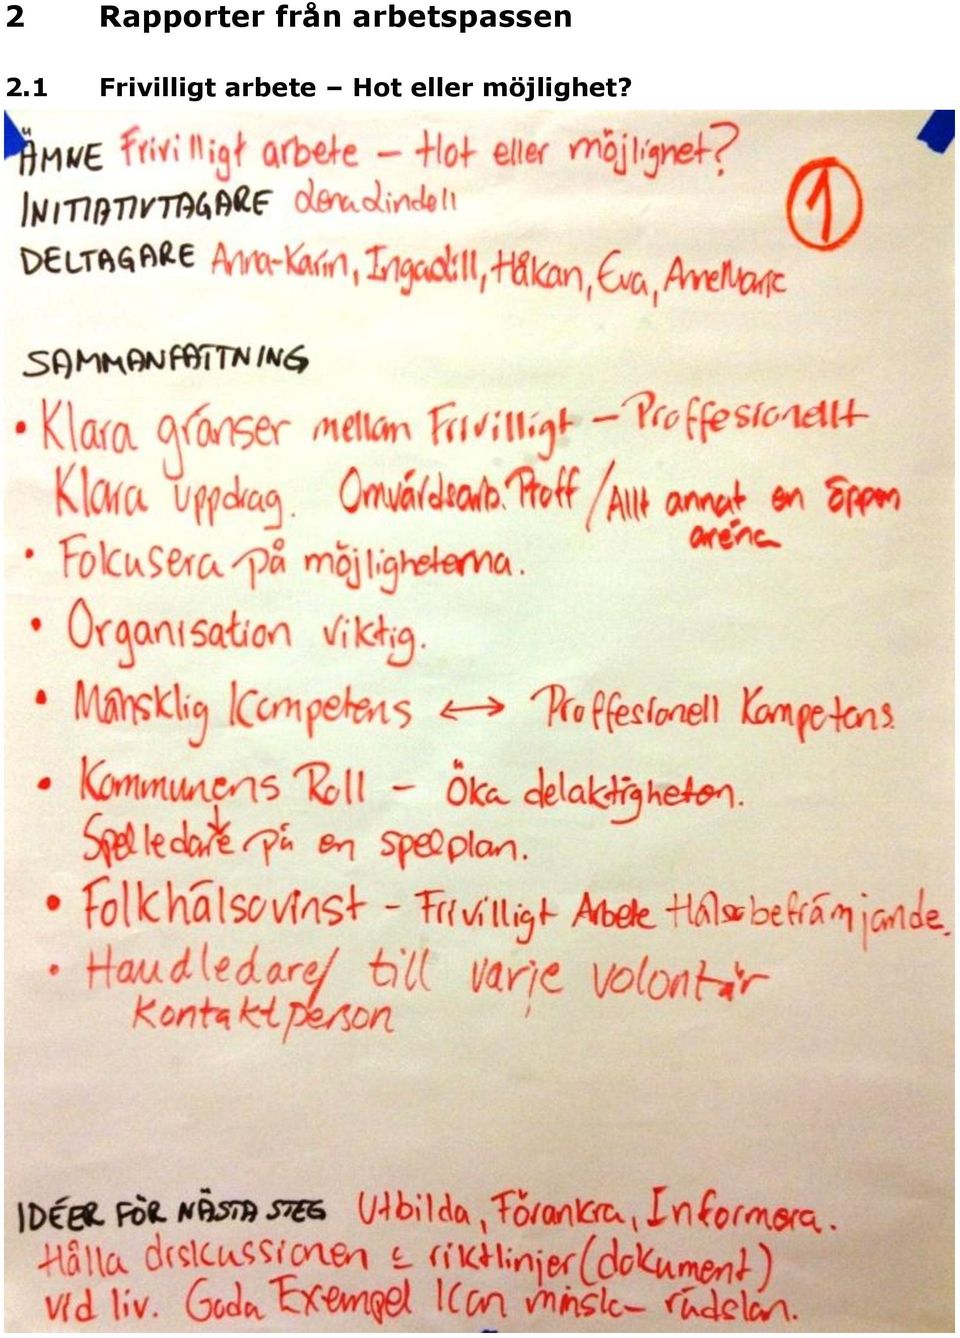 2 Rapporter från arbetspassen
2.1 Frivilligt arbete – Hot eller möjlighet?
ÄMNE Frivilligt arbete – Hot eller möjlighet?
1
INITIATIVTAGARE Lena Lindell
DELTAGARE Anna-Karin, Ingalill, Håkan, Eva, AnneMarie
SAMMANFATTNING
• Klara gränser mellan Frivilligt – Proffesionellt
Klara uppdrag. Omvårdsarb. Proff / Allt annat en öppen
arena
• Fokusera på möjligheterna.
• Organisation viktig.
• Mänsklig Kompetens ↔ Proffesionell Kompetens.
• Kommunens Roll – Öka delaktigheten.
Spelledare på en spelplan.
• Folkhälsovinst – Frivilligt Arbete Hälsobefrämjande.
• Handledare/ till varje volontär
Kontaktperson
IDÉER FÖR NÄSTA STEG Utbilda, Förankra, Informera.
Hålla diskussionen & riktlinjer (dokument)
vid liv. Goda Exempel kan minska rädslan.